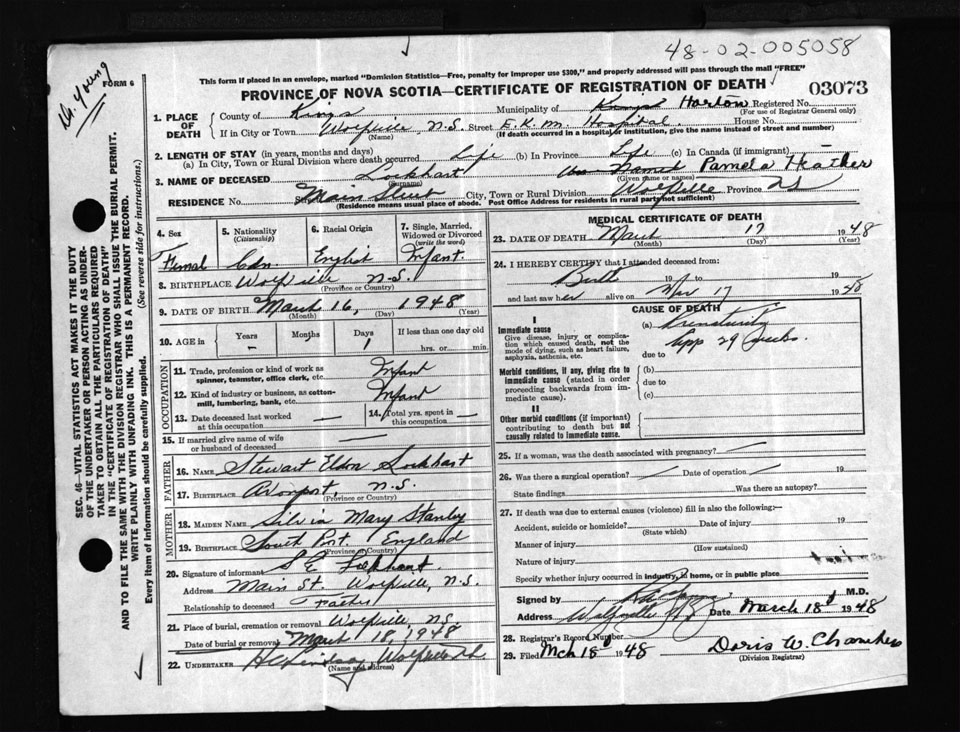 48-02-005058
Dr. Young
FORM 6
This form if placed in an envelope, marked "Dominion Statistics—Free, penalty for improper use $300," and properly addressed will pass through the mail "FREE"
PROVINCE OF NOVA SCOTIA—CERTIFICATE OF REGISTRATION OF DEATH
03073
SEC. 46—VITAL STATISTICS ACT MAKES IT THE DUTY
OF THE UNDERTAKER OR PERSON ACTING AS UNDER-
TAKER TO OBTAIN ALL THE PARTICULARS REQUIRED
IN THE "CERTIFICATE OF REGISTRATION OF DEATH"
AND TO FILE THE SAME WITH THE DIVISION REGISTRAR WHO SHALL ISSUE THE BURIAL PERMIT.
WRITE PLAINLY WITH UNFADING INK. THIS IS A PERMANENT RECORD.
Every item of Information should be carefully supplied. (See reverse side for instructions.)
1. PLACE OF DEATH
County of Kings Municipality of Kings Horton Registered No.
(For use of Registrar General only)
If in City or Town Wolfville N.S. Street E.K.M. Hospital. House No.
(Name) (If death occurred in a hospital or institution, give the name instead of street and number)
2. LENGTH OF STAY (in years, months and days)
(a) In City, Town or Rural Division where death occurred Life (b) In Province Life (c) In Canada (if immigrant)
3. NAME OF DECEASED Lockhart Pamela Heather
(Surname) (Given name or names)
RESIDENCE No. Main Street City, Town or Rural Division Wolfville Province NS
(Residence means usual place of abode. Post Office Address for residents in rural parts not sufficient)
4. Sex
Femal
5. Nationality
(Citizenship)
Cdn.
6. Racial Origin
English
7. Single, Married,
Widowed or Divorced
(write the word)
Infant.
8. BIRTHPLACE Wolfville N.S.
(Province or Country)
9. DATE OF BIRTH March 16, 1948
(Month) (Day) (Year)
10. AGE in
Years
–
Months
–
Days
1
If less than one day old
hrs. or min.
OCCUPATION
11. Trade, profession or kind of work as
spinner, teamster, office clerk, etc. Infant
12. Kind of industry or business, as cotton-
mill, lumbering, bank, etc. Infant
13. Date deceased last worked
at this occupation —
14. Total yrs. spent in
this occupation —
15. If married give name of wife
or husband of deceased —
FATHER
16. NAME Stewart Eldon Lockhart
17. BIRTHPLACE Avonport N.S.
(Province or Country)
MOTHER
18. MAIDEN NAME Silvia Mary Stanley
19. BIRTHPLACE South Port. England
(Province or Country)
20. Signature of informant S E Lockhart.
Address Main St. Wolfville, N.S.
Relationship to deceased Father
21. Place of burial, cremation or removal Wolfville, N.S.
Date of burial or removal March 18, 1948
22. UNDERTAKER Wolfville
(Name and address)
MEDICAL CERTIFICATE OF DEATH
23. DATE OF DEATH March 17 1948
(Month) (Day) (Year)
24. I HEREBY CERTIFY that I attended deceased from:
Birth 19 to 19
and last saw her alive on Mar 17 1948
CAUSE OF DEATH
I
Immediate cause
Give disease, injury or complica-
tion which caused death, not the
mode of dying, such as heart failure,
asphyxia, asthenia, etc.
(a) Prematurity
App 29 weeks.
due to
Morbid conditions, if any, giving rise to
immediate cause (stated in order
proceeding backwards from im-
mediate cause).
(b)
due to
(c)
II
Other morbid conditions (if important)
contributing to death but not
causally related to immediate cause.
25. If a woman, was the death associated with pregnancy?
26. Was there a surgical operation? Date of operation 19
State findings Was there an autopsy?
27. If death was due to external causes (violence) fill in also the following:—
Accident, suicide or homicide? Date of injury 19
(State which)
Manner of injury
(How sustained)
Nature of injury
Specify whether injury occurred in industry, in home, or in public place
Signed by M.D.
Address Wolfville NS Date March 18d 1948
28. Registrar's Record Number
29. Filed Mch 18d 1948 Doris W. Chambers
(Division Registrar)